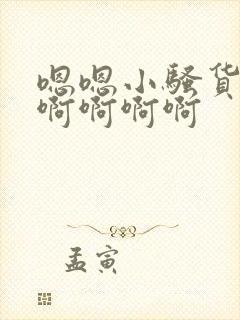 嗯嗯小骚货
啊啊啊啊
孟寅